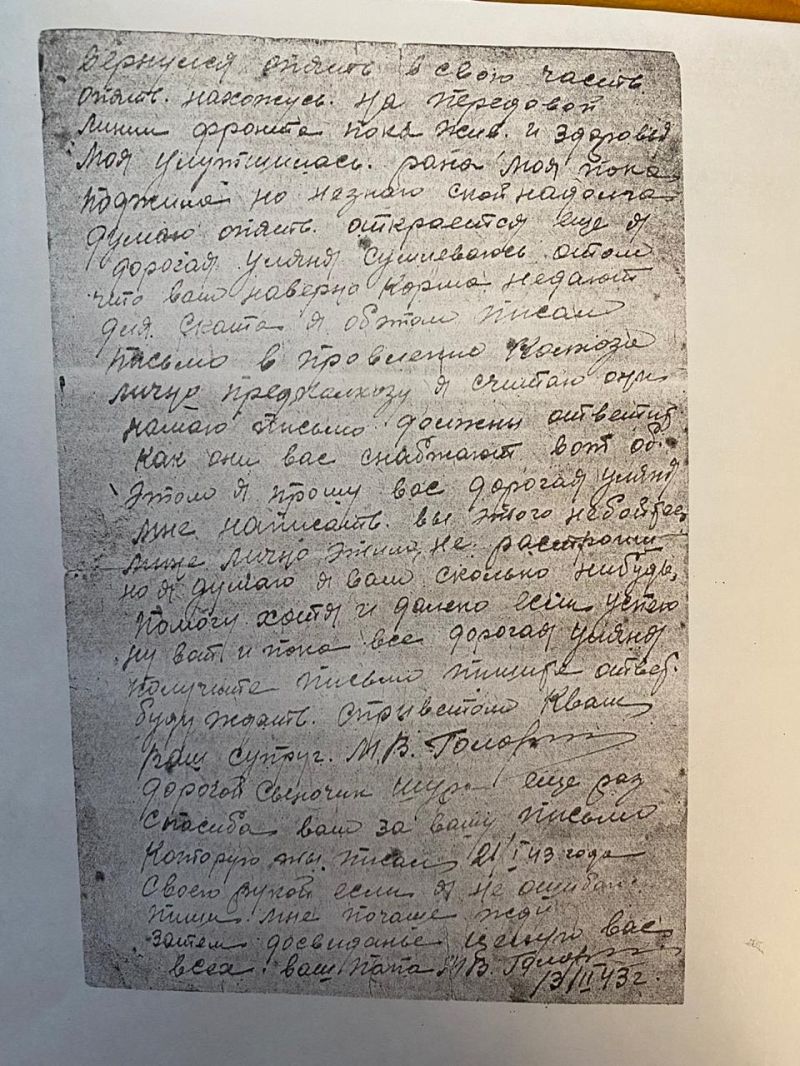 Вернулся опять в свою часть
опять. нахожусь. на передовой
линии фронта пока жив. и здоровья
моя улутшилась. рана моя пока
поджила но незнаю скол надолга
думаю опять. откроется еще я
дорогая уляня сумлеваюсь отом
что вам наверно корма недают
для скота я обэтом писал
письмо в провление колхоза
лично предколхозу я считаю они
намаю письмо должны ответить
как они вас снабжают вот об
этом я прошу вас дорогая уляня
мне написать. вы этого небойтес
мине лично этим не
но я думаю я вам сколько нибудь
помогу хотя и далеко если успею
ну вот и пока все дорогая уляня
получите письмо пишите ответ.
буду ждать. сприветом Квам
ваш супруг. М В.
дорогой сыночик шура еще раз
спасиба вам за вашу письмо
которую ты писал 21/I 43 года
своею рукой если я не ошибаюс
пиши мне почаще жду
затем досвиданье целую вас
всех. ваш папа М В.
13/II 43 г.